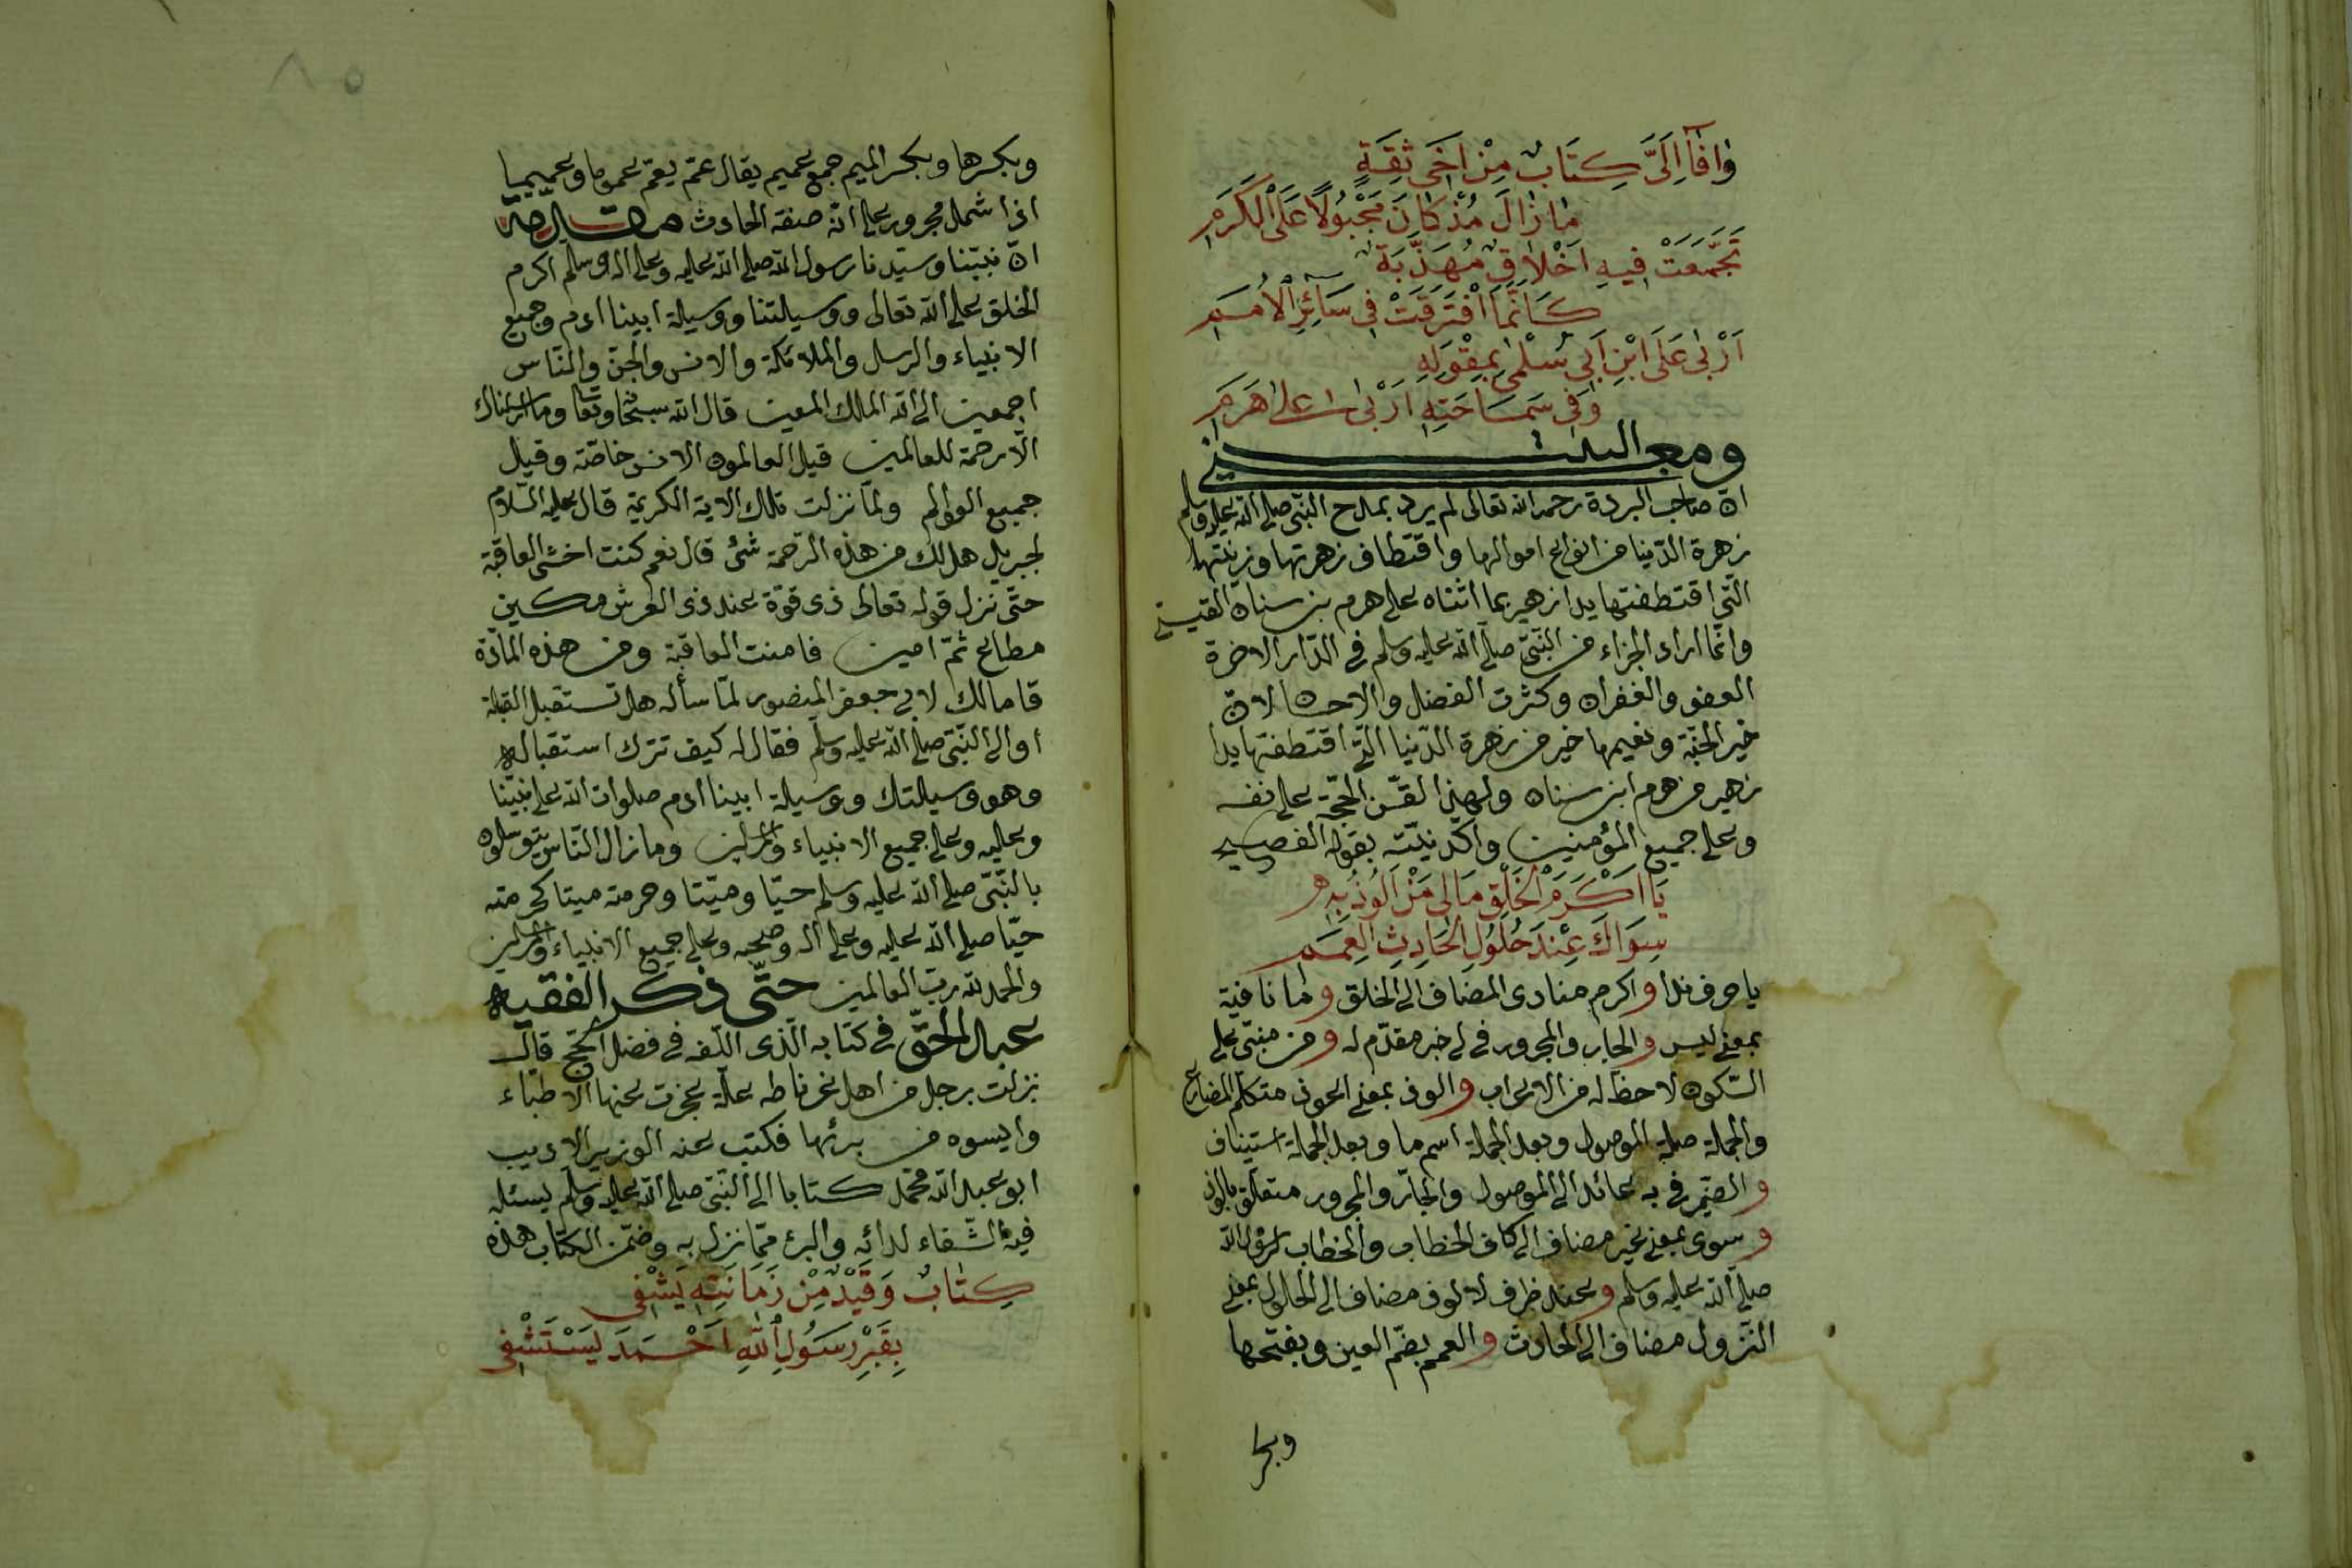 وافا الىّ كتاب من اخى ثقة
ما زال مذ كان مجبولا على الكرم
تجمعت فيه اخلاق مهذبة
كانما افترقت فى سائر الامم
اربى على ابن ابى سلمى بمقوله
وفى سماحته اربى على هرم
ومعنى البيت
ان صاحب البردة رحمه الله تعالى لم يرد بمدح النبى صلى الله عليه وسلم
زهرة الدنيا من انواع اموالها واقتطاف زهرتها وزينتها
التى اقتطفتها يدا زهير بما اثناه على هرم بن سنان القيسى
وانما اراد الجزاء من النبى صلى الله عليه وسلم فى الدار الاخرة
العفو والغفران وكثرت الفضل والاحسان لان
خير الجنة ونعيمها خير من زهرة الدنيا التى اقتطفتها يدا
زهير من هرم ابن سنان ولهذا لقن الحجة على نفسه
وعلى جميع المؤمنين واكد نيته بقوله الفصيح
يا اكرم الخلق مالى من الوذ به
سواك عند حلول الحادث العمم
يا حرف ندا واكرم منادى المضاف الى الخلق وما نافية
بمعنى ليس والجار والمجرور فى لى خبر مقدم له ومن مبنى على
السكون لا حظ له من الاعراب والوذ بمعنى اعوذ متكلم المضارع
والجملة صلة الموصول وبعد الجملة اسم ما وبعد الجملة استيناف
والضمير فى به عائد الى الموصول والجار والمجرور متعلق بالوذ
وسوى بمعنى غير مضاف الى كاف الخطاب والخطاب لرسول الله
صلى الله عليه وسلم وعند ظرف لالوذ مضاف الى الحلول بمعنى
النزول مضاف الى الحادث والعمم بضم العين وبفتحها
وبكر
وبكرها وبكسر الميم جمع عميم يقال عم يعم عموما وعميما
اذا شمل مجرور على انه صفة الحادث
ان نبينا وسيدنا رسول الله صلى الله عليه وعلى اله وسلم اكرم
الخلق على الله تعالى ووسيلتنا ووسيلة ابينا ادم وجميع
الانبياء والرسل والملائكة والانس والجن والناس
اجمعين الى الله الملك المعين قال الله سبحانه وتعالى وما ارسلناك
الا رحمة للعالمين قيل العالمون الانس خاصة وقيل
جميع العوالم ولما نزلت تلك الاية الكريمة قال عليه السلام
لجبريل هل لك من هذه الرحمة شئ قال نعم كنت اخشى العاقبة
حتى نزل قوله تعالى ذى قوة عند ذى العرش مكين
مطاع ثم امين فامنت العاقبة ومن هذه المادة
قا مالك لابى جعفر المنصور لما سأله هل تستقبل القبلة
او الى النبى صلى الله عليه وسلم فقال له كيف تترك استقباله
وهو وسيلتك ووسيلة ابينا ادم صلوات الله على نبينا
وعليه وعلى جميع الانبياء والمرسلين وما زال الناس يتوسلون
بالنبى صلى الله عليه وسلم حيا وميتا وحرمته ميتا كحرمته
حيا صلى الله عليه وعلى اله وصحبه وعلى جميع الانبياء والمرسلين
والحمد لله رب العالمين حتى ذكر الفقيه
عبد الحق فى كتابه الذى الفه فى فضل الحج قال
نزلت برجل من اهل غرناطه علة عجزت عنها الاطباء
وايسوه من برئها فكتب عنه الوزير الاديب
ابو عبد الله محمد كتابا الى النبى صلى الله عليه وسلم يسئله
فيه الشفاء لدائه والبرء مما نزل به وضمن الكتاب هذه
كتاب وقيد من زمانته يشفى
بقبر رسول الله احمد يستشفى